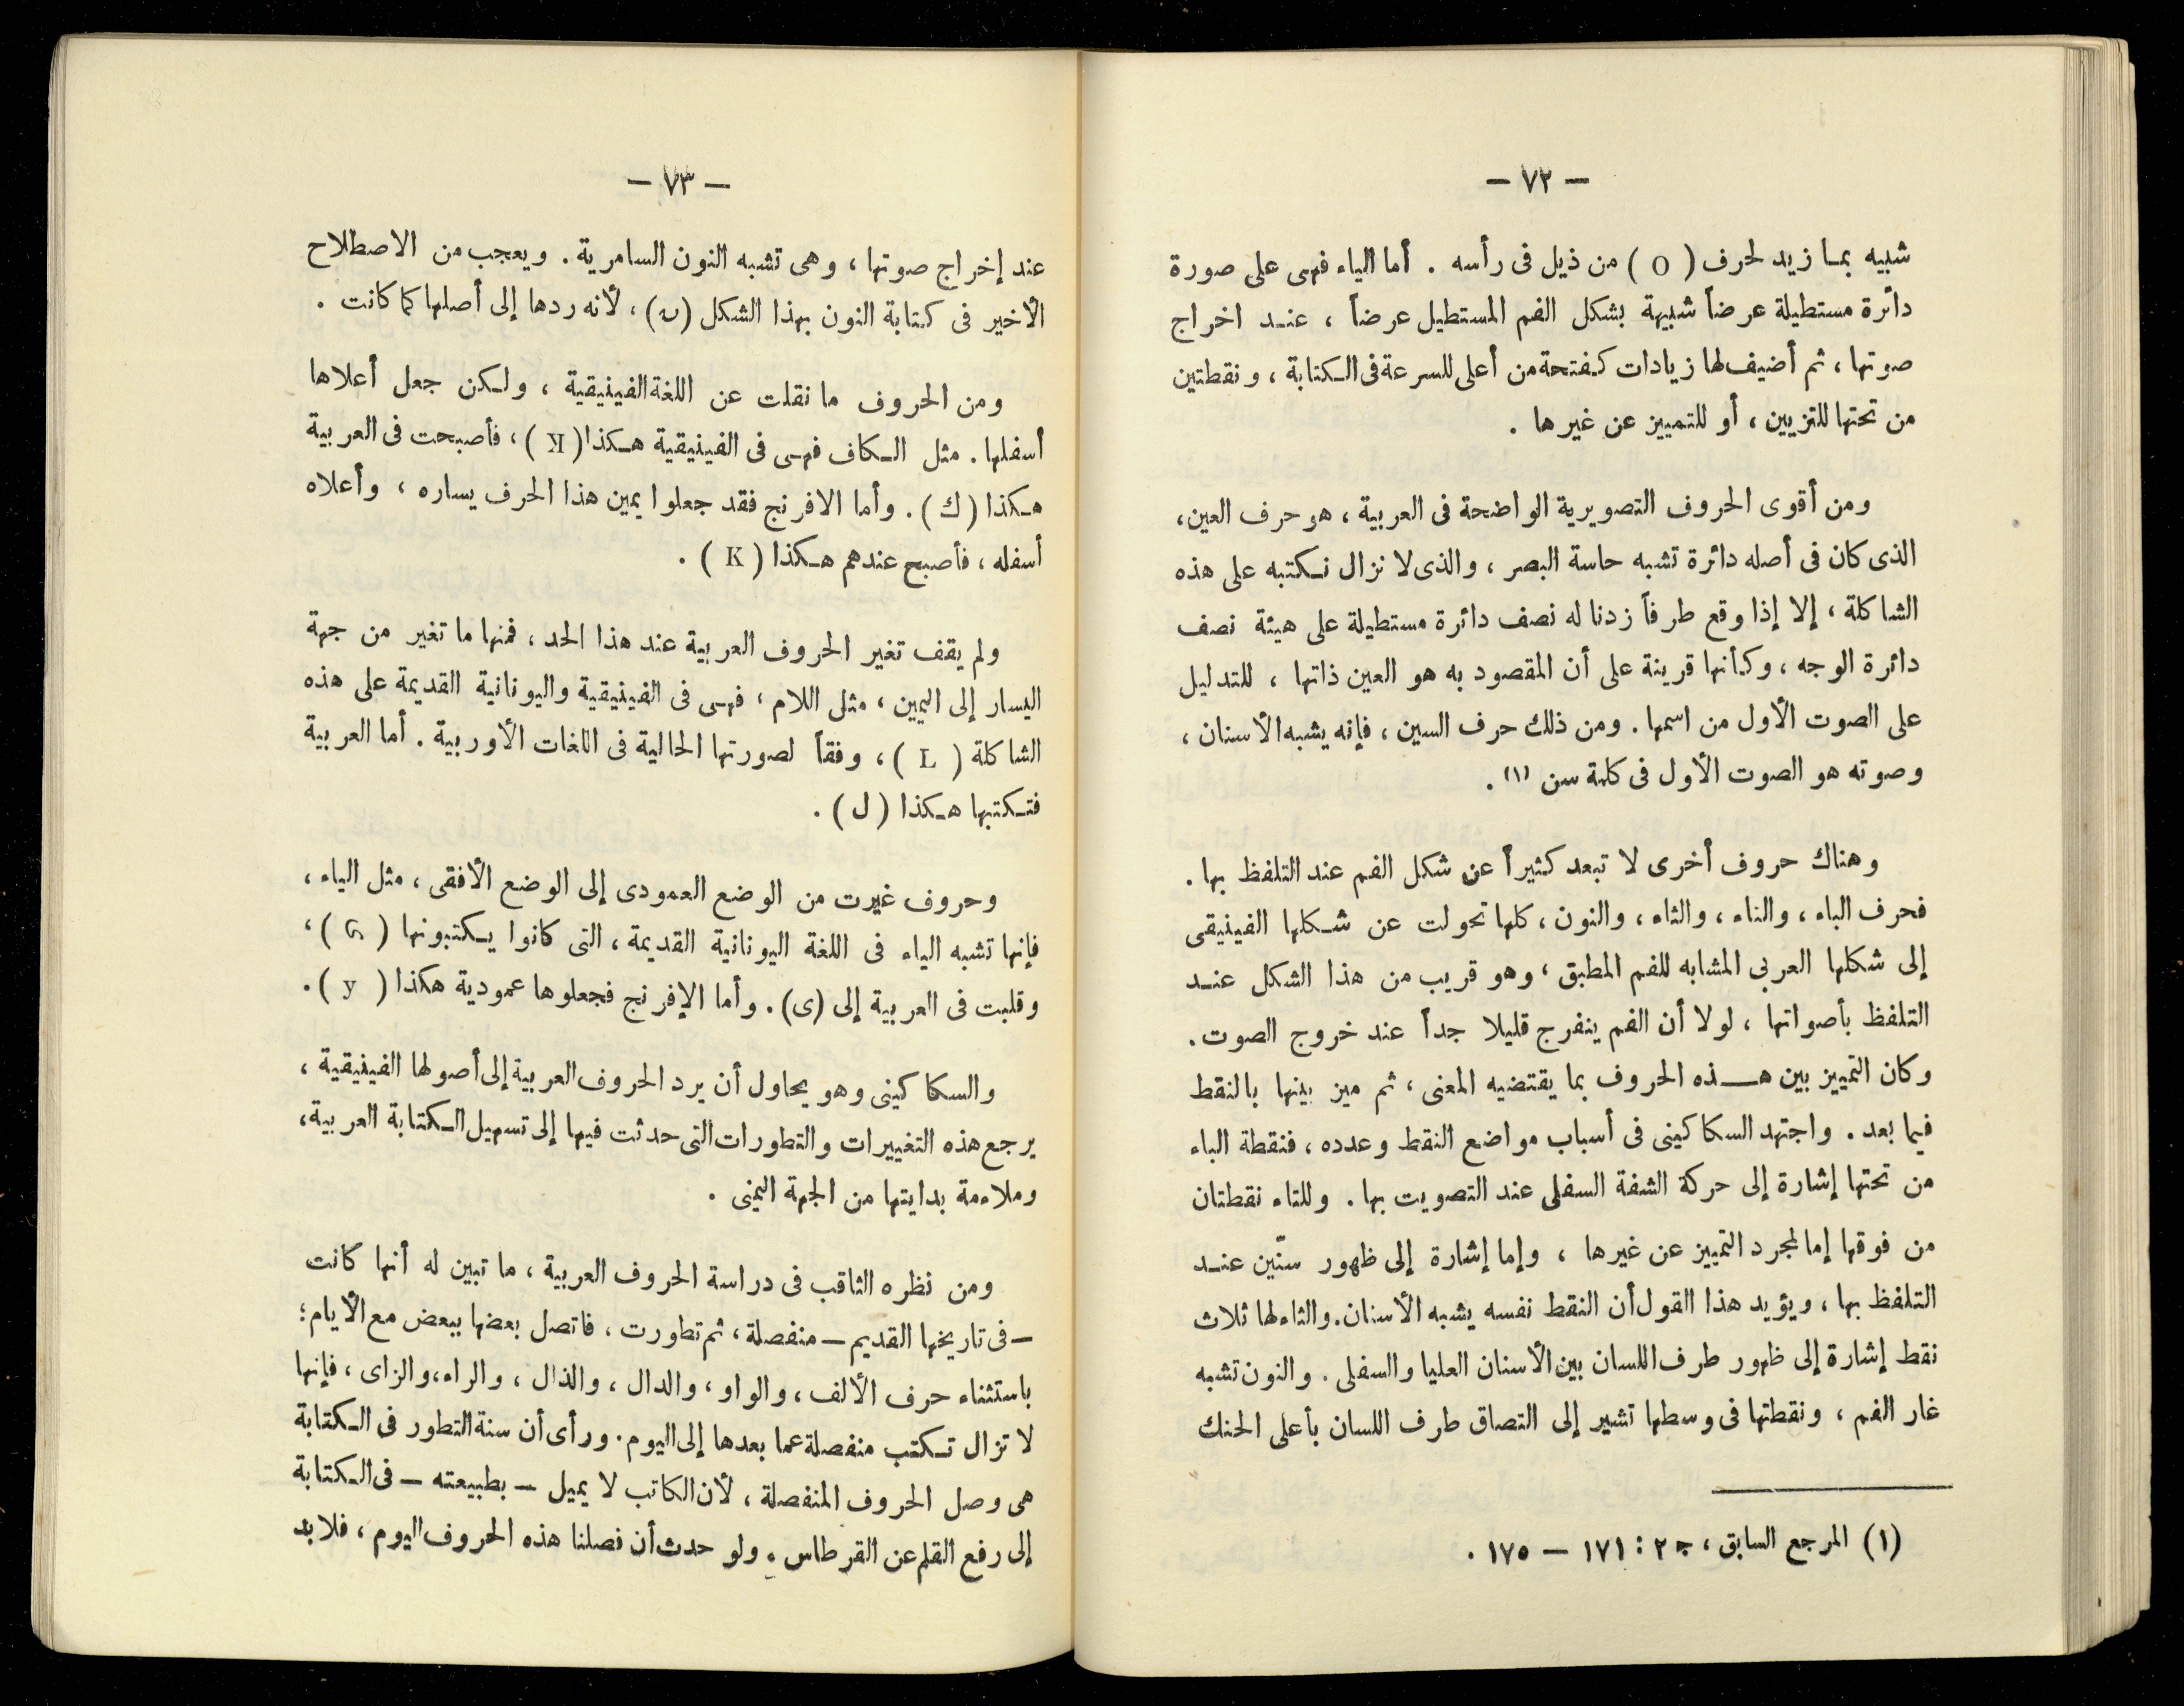 — ٧٢ —
شبيه بمـا زيد لحرف ( O ) من ذيل فى رأسه . أما الياء فهى على صورة
دائرة مستطيلة عرضاً شبيهة بشكل الفم المستطيل عرضاً ، عنـد اخراج
صوتها ، ثم أضيف لها زيادات كـفتحة من أعلى للسرعة فى الـكتابة ، ونقطتين
من تحتها للتزيين ، أو للتمييز عن غيرها .
ومن أقوى الحروف التصويرية الواضحة فى العربية ، هو حرف العين ،
الذى كان فى أصله دائرة تشبه حاسة البصر ، والذى لا نزال نـكتبه على هذه
الشاكلة ، إلا إذا وقع طرفاً زدنا له نصف دائرة مستطيلة على هيئة نصف
دائرة الوجه ، وكـأنها قرينة على أن المقصود به هو العين ذاتها ، للتدليل
على الصوت الأول من اسمها . ومن ذلك حرف السين ، فإنه يشبه الأسنان ،
وصوته هو الصوت الأول فى كلمة سن (١) .
وهناك حروف أخرى لا تبعد كثيراً عن شكل الفم عند التلفظ بها .
فحرف الباء ، والتاء ، والثاء ، والنون ، كلها تحولت عن شـكلها الفينيقى
إلى شكلها العربى المشابه للفم المطبق ، وهو قريب من هذا الشكل عنـد
التلفظ بأصواتها ، لولا أن الفم ينفرج قليلا جداً عند خروج الصوت .
وكان التمييز بين هـــذه الحروف بما يقتضيه المعنى ، ثم ميز بينها بالنقط
فيما بعد . واجتهد السكاكينى فى أسباب مواضع النقط وعدده ، فنقطة الباء
من تحتها إشارة إلى حركة الشفة السفلى عند التصويت بها . وللتاء نقطتان
من فوقها إما لمجرد التمييز عن غيرها ، وإما إشارة إلى ظهور سنّين عنـد
التلفظ بها ، ويؤيد هذا القول أن النقط نفسه يشبه الأسنان . والثاء لها ثلاث
نقط إشارة إلى ظهور طرف اللسان بين الأسنان العليا والسفلى . والنون تشبه
غار الفم ، ونقطتها فى وسطها تشير إلى التصاق طرف اللسان بأعلى الحنك
(١) المرجع السابق ، جـ ٢ : ١٧١ — ١٧٥ .
— ٧٣ —
عند إخراج صوتها ، وهى تشبه النون السامرية . ويعجب من الاصطلاح
الأخير فى كـتابة النون بهذا الشكل (ں) ، لأنه ردها إلى أصلها كما كانت .
ومن الحروف ما نقلت عن اللغة الفينيقية ، ولـكن جعل أعلاها
أسفلها . مثل الـكاف فهـى فى الفينيقية هـكذا ( ꓘ ) ، فأصبحت فى العربية
هـكذا ( ك ) . وأما الافرنج فقد جعلوا يمين هذا الحرف يساره ، وأعلاه
أسفله ، فأصبح عندهم هـكذا ( K ) .
ولم يقف تغير الحروف العربية عند هذا الحد ، فمنها ما تغير من جهة
اليسار إلى اليمين ، مثل اللام ، فهـى فى الفينيقية واليونانية القديمة على هذه
الشاكلة ( L ) ، وفقاً لصورتها الحالية فى اللغات الأوربية . أما العربية
فتـكتبها هـكذا ( ل ) .
وحروف غيرت من الوضع العمودى إلى الوضع الأفقى ، مثل الياء ،
فإنها تشبه الياء فى اللغة اليونانية القديمة ، التى كانوا يـكتبونها ( ) ،
وقلبت فى العربية إلى (ى) . وأما الإفرنج فجعلوها عمودية هكذا ( y ) .
والسكاكينى وهو يحاول أن يرد الحروف العربية إلى أصولها الفينيقية ،
يرجع هذه التغييرات والتطورات التى حدثت فيها إلى تسهيل الـكتابة العربية ،
وملاءمة بدايتها من الجهة اليمنى .
ومن نظره الثاقب فى دراسة الحروف العربية ، ما تبين له أنها كانت
— فى تاريخها القديم — منفصلة ، ثم تطورت ، فاتصل بعضها ببعض مع الأيام ؛
باستثناء حرف الألف ، والواو ، والدال ، والذال ، والراء ، والزاى ، فإنها
لا تزال تـكتب منفصلة عما بعدها إلى اليوم . ورأى أن سنة التطور فى الـكتابة
هى وصل الحروف المنفصلة ، لأن الكاتب لا يميل — بطبيعته — فى الـكتابة
إلى رفع القلم عن القرطاس . ولو حدث أن فصلنا هذه الحروف اليوم ، فلا بد